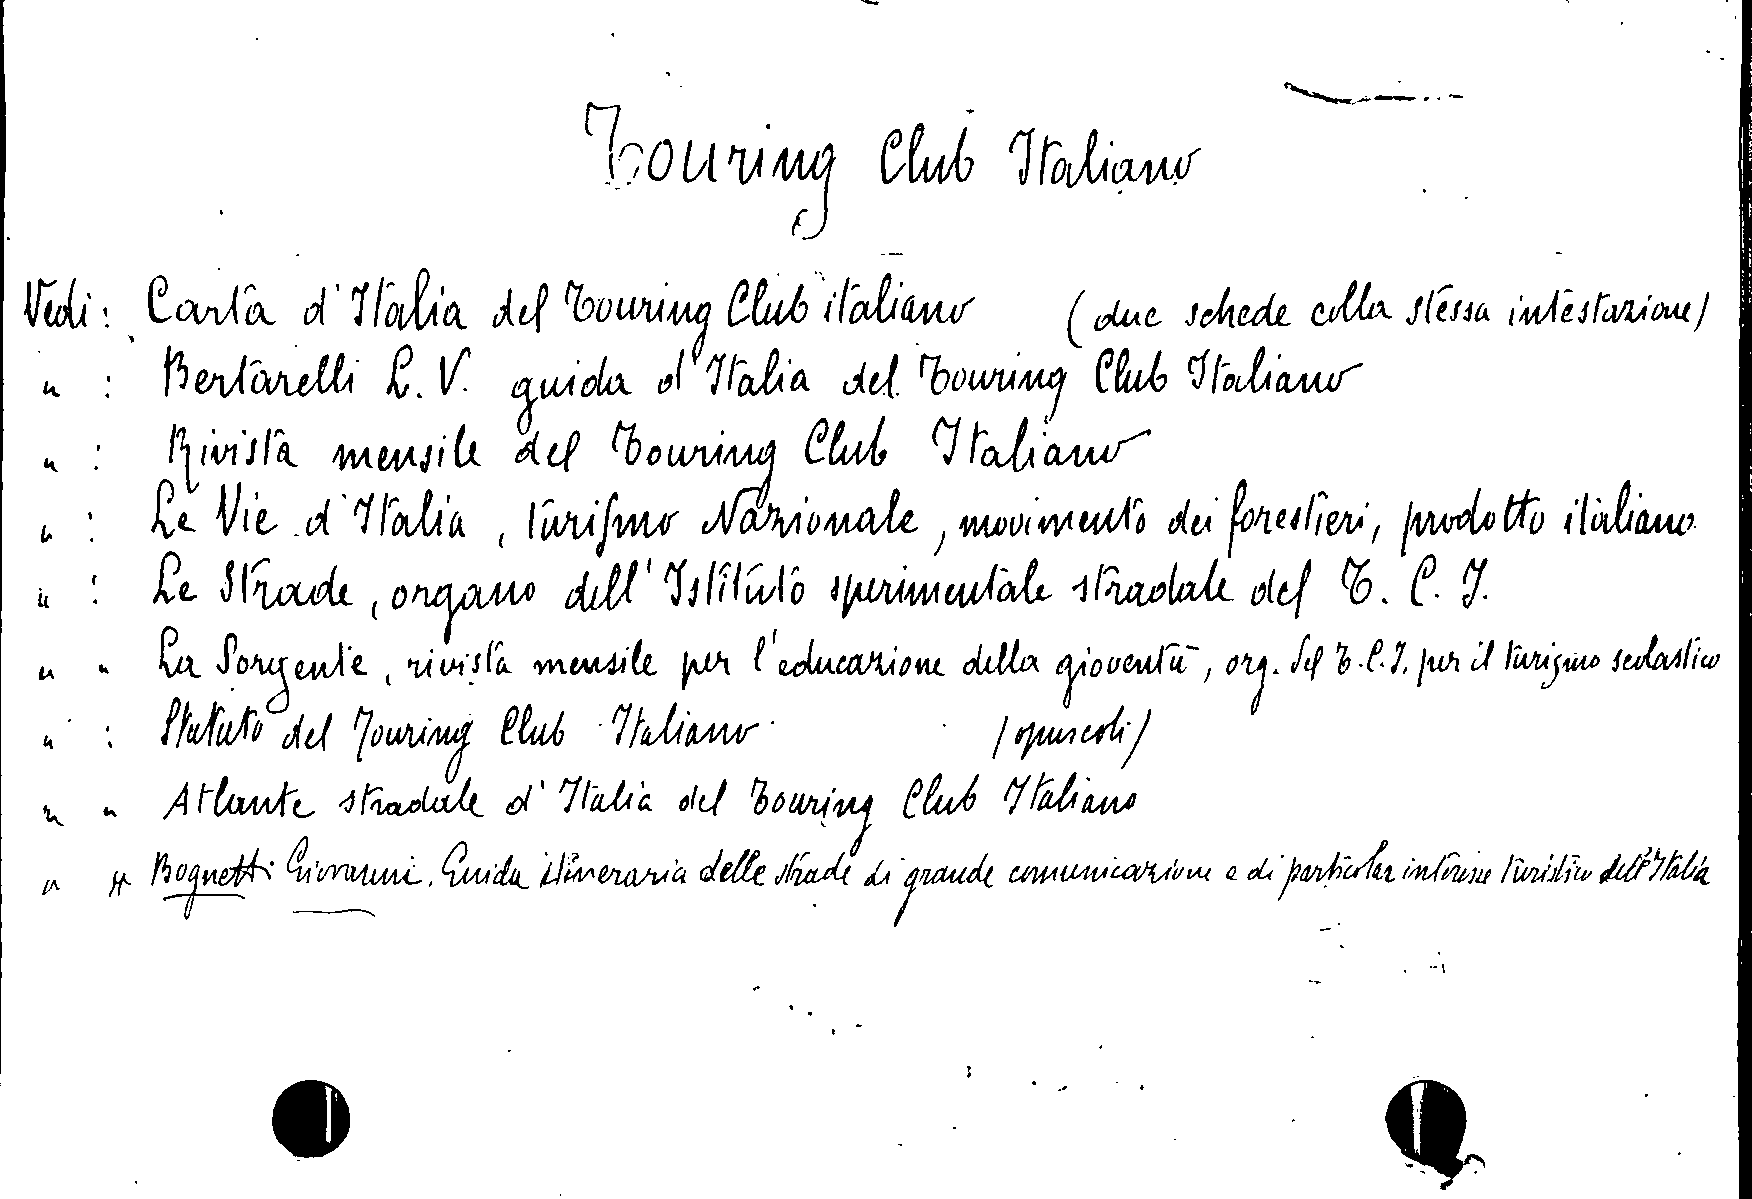 Touring Club Italiano
Vedi: Carta d'Italia del Touring Club italiano (due schede colla stessa intestazione)
" : Bertarelli L. V. guida d'Italia del Touring Club Italiano
" : Rivista mensile del Touring Club Italiano
" : Le Vie d'Italia, turismo Nazionale, movimento dei forestieri, prodotto italiano
" : Le Strade, organo dell'Istituto sperimentale stradale del T. C. I.
" " La Sorgente, rivista mensile per l'educazione della gioventù, org. del T.C.I. per il turismo scolastico
" : Statuto del Touring Club Italiano (opuscoli)
" " Atlante stradale d'Italia del Touring Club Italiano
" " Bognetti Giovanni. Guida itineraria delle strade di grande comunicazione e di particolar interesse turistico dell'Italia